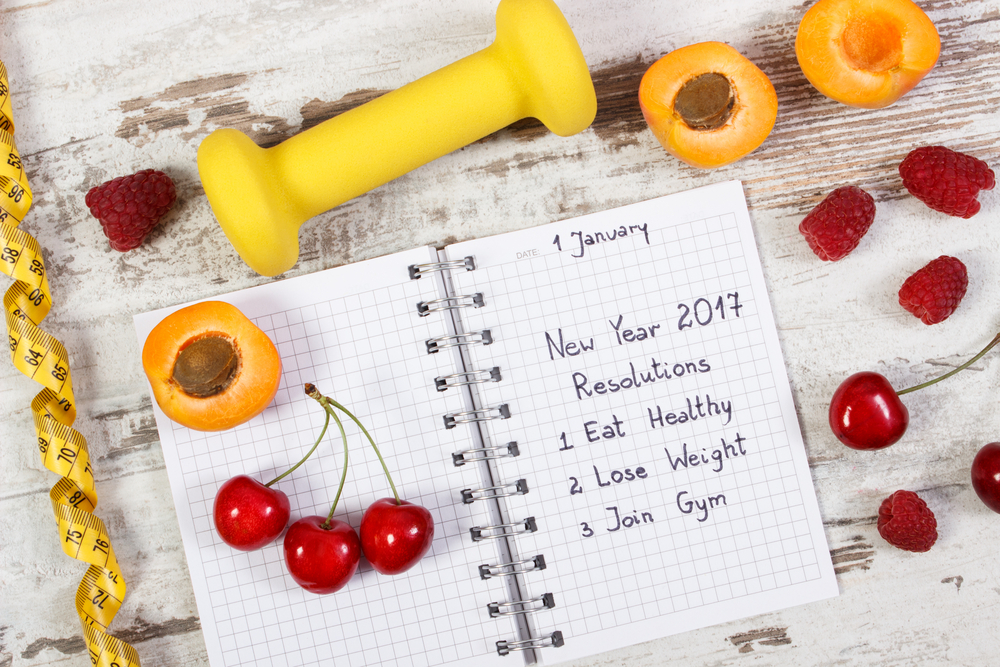 DATE: 1 January
New Year 2017
Resolutions
1 Eat Healthy
2 Lose Weight
3 Join Gym
58
59
60
64
65
70
75
76
72